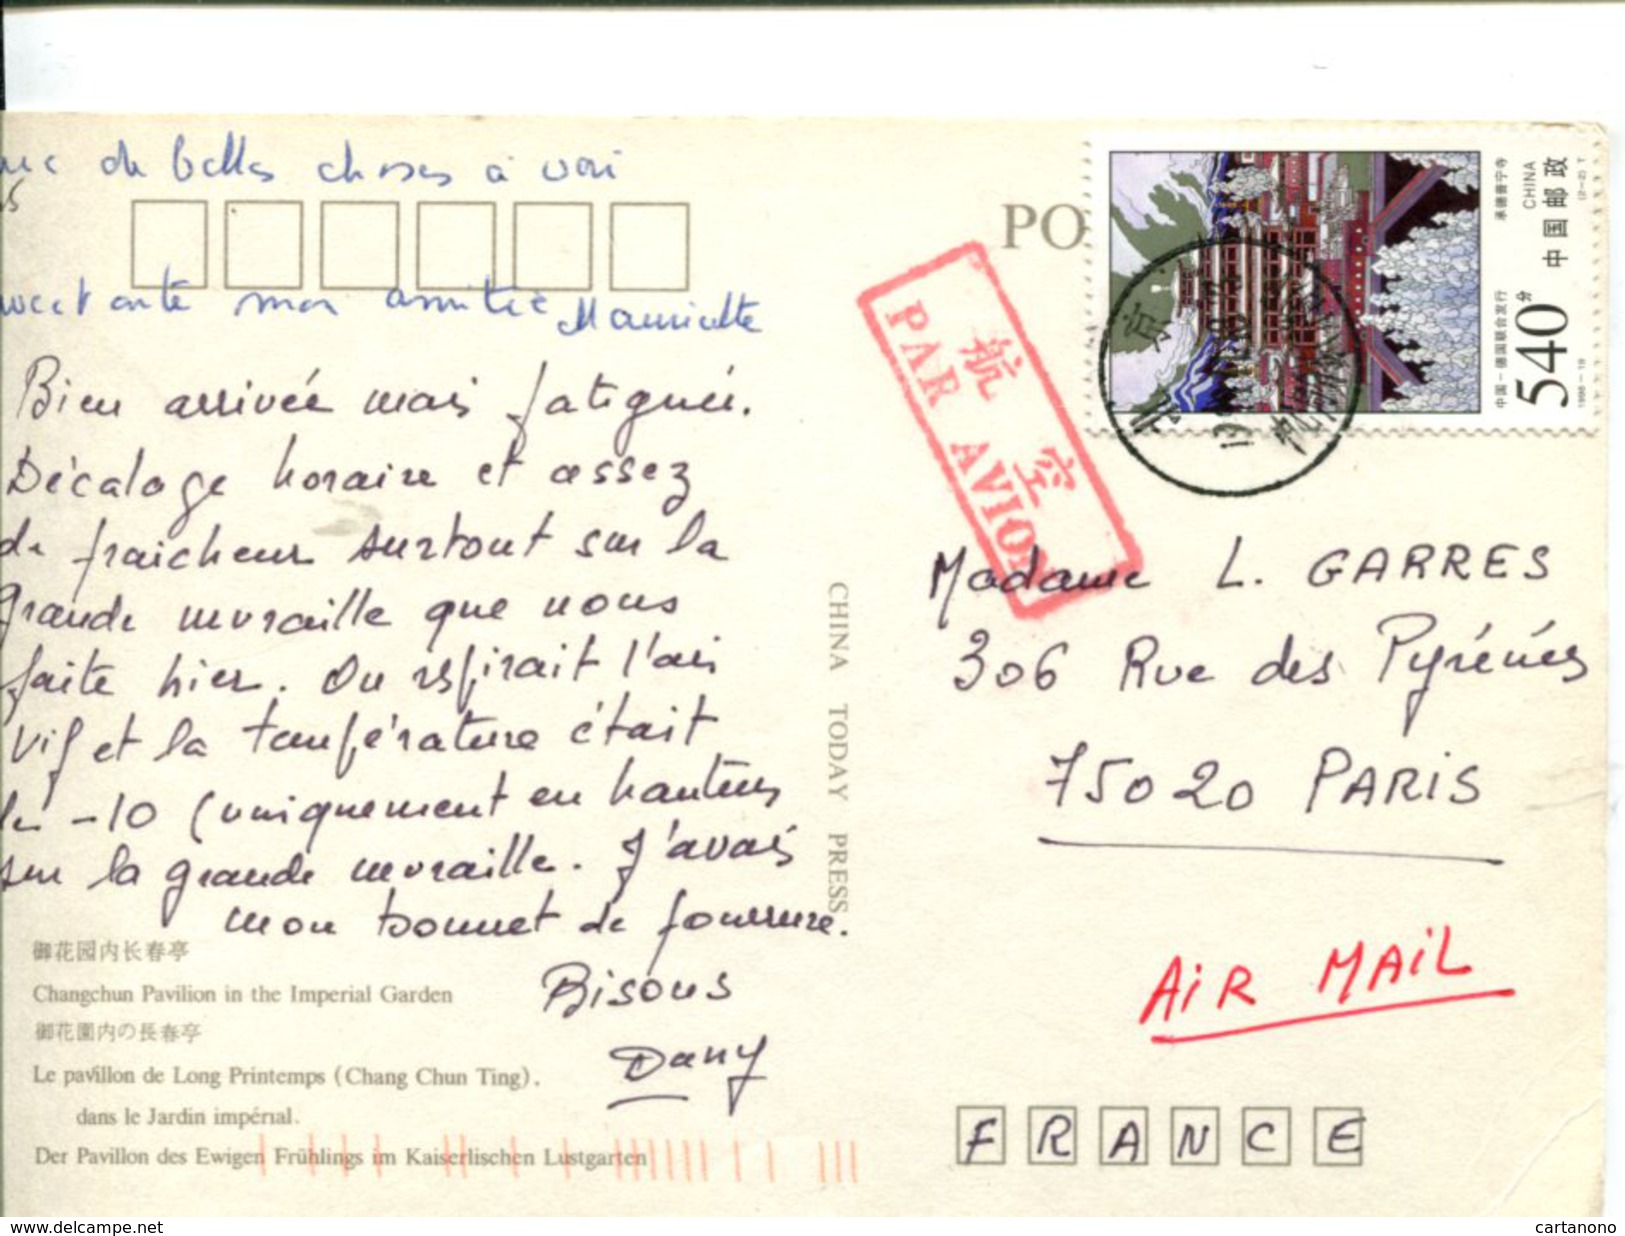 de belles choses à voir
mon amitié Mauricette
Bien arrivée mais fatiguée.
Décalage horaire et assez
de fraicheur surtout sur la
grande muraille que nous
faite hier. On respirait l'air
vif et la température était
de -10 (uniquement en hauteur
sur la grande muraille. J'avais
mon bonnet de fourrure.
Bisous
Dany
御花园内长春亭
Changchun Pavilion in the Imperial Garden
御花園内の長春亭
Le pavillon de Long Printemps (Chang Chun Ting),
dans le Jardin impérial.
Der Pavillon des Ewigen Frühlings im Kaiserlischen Lustgarten
CHINA TODAY PRESS
PO
航空
PAR AVION
承德普宁寺
(2-2) T
CHINA
中国邮政
中国-德国联合发行
540分
1998-19
北京
Madame L. GARRES
306 Rue des Pyrénées
75020 PARIS
AiR MAiL
FRANCE
www.delcampe.net
cartanono